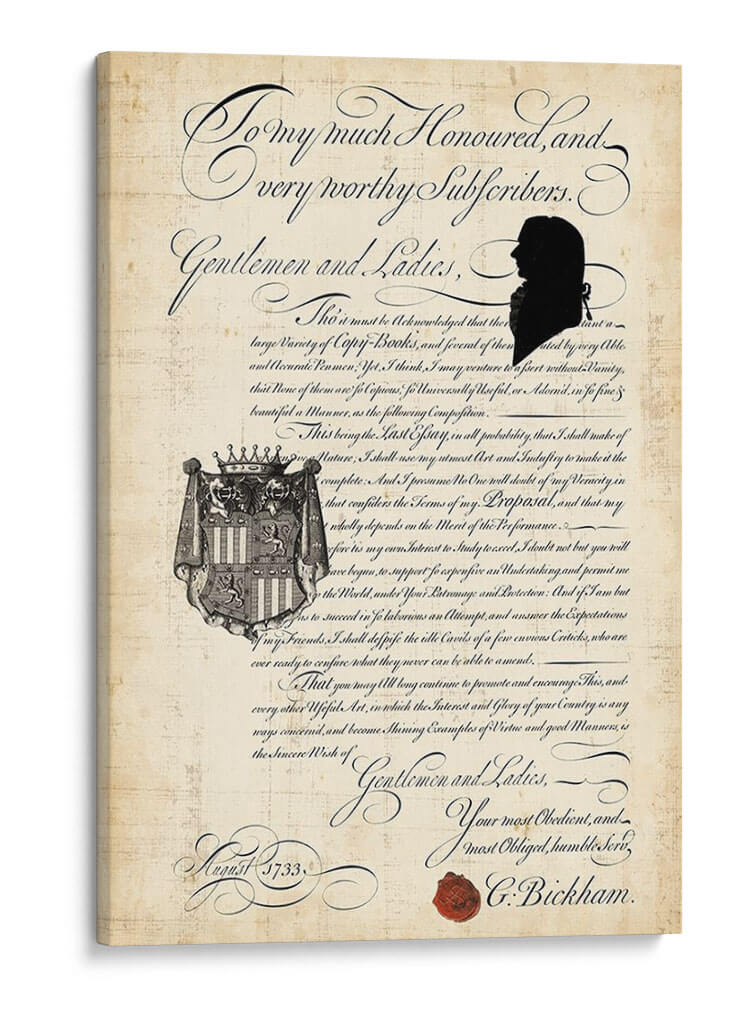 To my much Honoured, and
very worthy Subſcribers.
Gentlemen and Ladies,
Tho' it must be Acknowledged that the tant a
large Variety of Copy-Books, and ſeveral of them uted by very Able
and Accurate Penmen; Yet, I think, I may venture to aſsert without Vanity,
that None of them are ſo Copious, ſo Univerſally Uſeful, or Adorn'd, in ſo fine &
beautiful a Manner, as the following Compoſition.
This being the Last Eſsay, in all probability, that I shall make of
Nature; I shall uſe my utmost Art and Induſtry to make it the
complete: And I preſume No One will doubt of my Veracity, in
that conſiders the Terms of my Propoſal, and that my
wholly depends on the Merit of the Performance.
'tis my own Interest to Study to excel, I doubt not but you will
have begun, to support ſo expenſive an Undertaking, and permit me
the World, under Your Patronage and Protection: And if I am but
as to succeed in ſo laborious an Attempt, and answer the Expectations
of my Friends, I shall deſpiſe the idle Cavils of a few envious Criticks, who are
ever ready to cenſure what they never can be able to amend.
That you may All long continue to promote and encourage This, and
every other Uſeful Art, in which the Interest and Glory of your Country is any
ways concern'd, and become Shining Examples of Virtue and good Manners, is
the Sincere Wish of
Gentlemen and Ladies,
Your most Obedient, and
most Obliged, humble Serv.
August 1733.
G: Bickham.